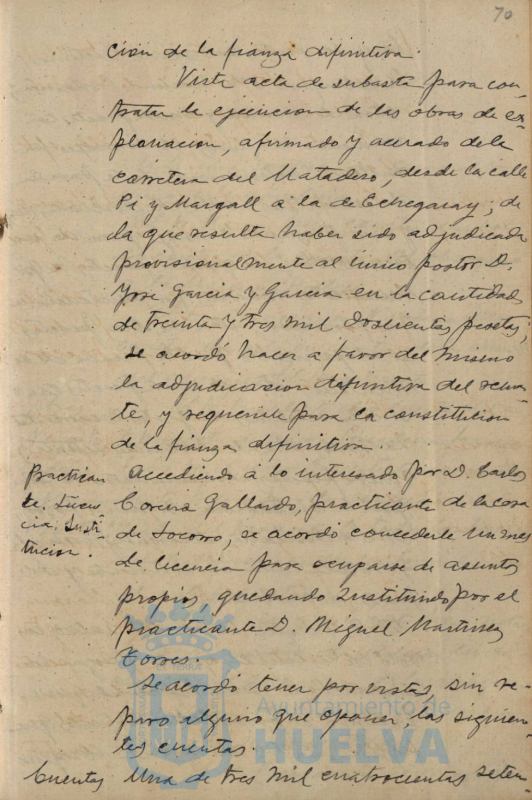 70
ción de la fianza difinitiva.
Vista acta de subasta para con-
tratar la ejecucion de las obras de ex-
planacion, afirmado y acerado de la
carretera del Matadero, desde la calle
Pi y Margall á la de Echegaray; de
la que resulta haber sido adjudicada
provisionalmente al unico postor D.
José Garcia y Garcia en la cantidad
de treinta y tres mil doscientas pesetas,
se acordó hacer a favor del mismo
la adjudicacion difinitiva del rema-
te, y requerirle para la constitucion
de la fianza difinitiva.
Practican
te. Licen
cia. Susti-
tucion.
Accediendo á lo interesado por D. Carlos
Gallardo, practicante de la casa
de Socorro, se acordó concederle un mes
de licencia para ocuparse de asuntos
propios, quedando sustituido por el
practicante D. Miguel Martinez
Torres.
Se acordó tener por vistas, sin re-
paro alguno que oponer, las siguien-
tes cuentas.
Cuentas
Una de tres mil cuatrocientas seten
Ayuntamiento de
HUELVA